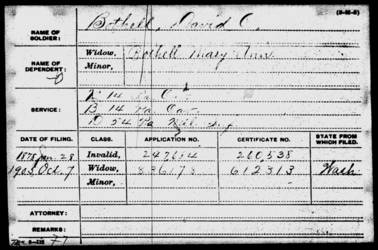 (3-35-5)
NAME OF SOLDIER: Bothell, David C.
NAME OF DEPENDENT: Widow, Bothell Mary Ann
Minor,
SERVICE: K 14 Pa Cav
B 14 Pa Cav
D 54 Pa Mil Inf
DATE OF FILING. CLASS. APPLICATION NO. CERTIFICATE NO. STATE FROM WHICH FILED.
1878 Jan. 28 Invalid, 260,538
1905 Oct. 7 Widow, 612,313 Wash
Minor,
ATTORNEY:
REMARKS: